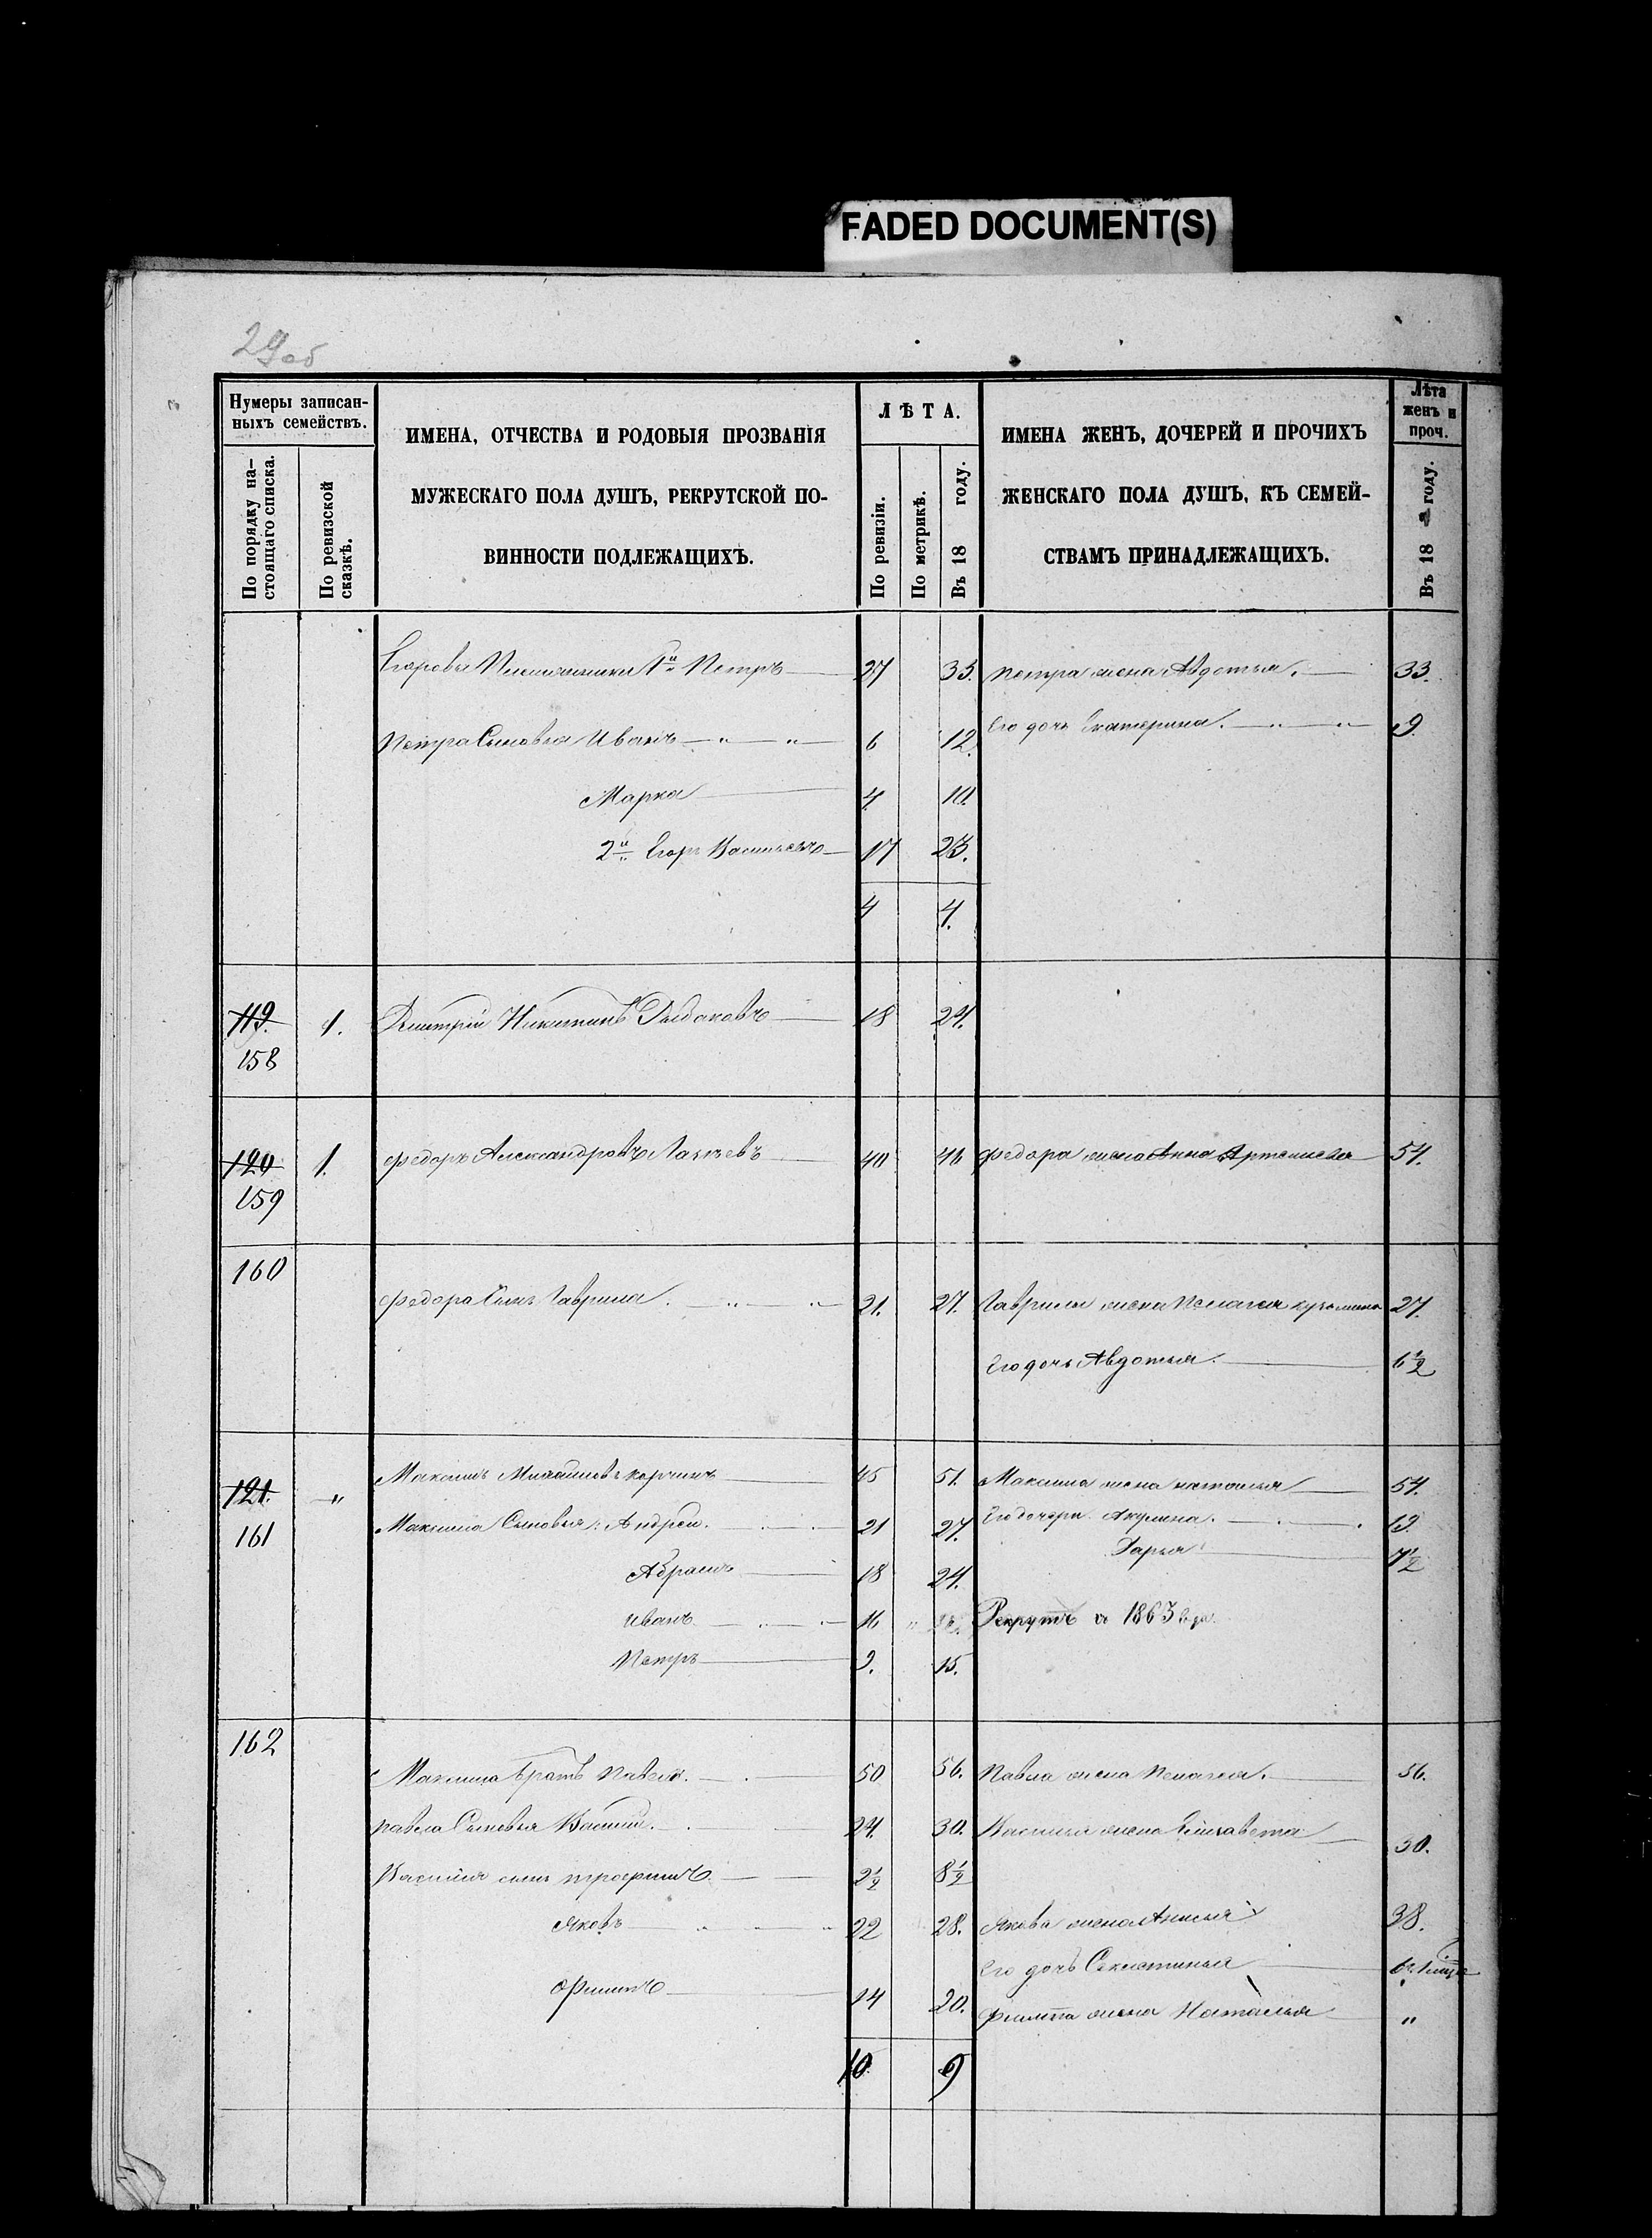 FADED DOCUMENT(S)
29об
Нумеры записан-
ныхъ семействъ.
По порядку на-
стоящаго списка.
По ревизской
сказкѣ.
ИМЕНА, ОТЧЕСТВА И РОДОВЫЯ ПРОЗВАНІЯ
МУЖЕСКАГО ПОЛА ДУШЪ, РЕКРУТСКОЙ ПО-
ВИННОСТИ ПОДЛЕЖАЩИХЪ.
ЛѢТА.
По ревизіи.
По метрикѣ.
Въ 18 году.
ИМЕНА ЖЕНЪ, ДОЧЕРЕЙ И ПРОЧИХЪ
ЖЕНСКАГО ПОЛА ДУШЪ, КЪ СЕМЕЙ-
СТВАМЪ ПРИНАДЛЕЖАЩИХЪ.
Лѣта
женъ и
проч.
Въ 18 году.
Егоровы Племянники 1й Петръ 27 33. Петра жена Авдотья. 33.
Его дочь Екатерина. 9
Петра Сыновья Иванъ 6 12.
Марка 4 10.
2й Егоръ Васильевъ 17 23.
4 4.
119. 1. Дмитрій Никитинъ 18 24.
158
120 1. Федоръ Александровъ 40 46 Федора жена Анна Артемьева 54.
159
160
Федора Сынъ Гаврила. 21. 27. Гаврилы жена Пелагея кузьмина 27.
Его дочь Авдотья. 6½
Максимъ Михайловъ 45 51. Максима жена наталья 54.
121. "
Максима Сыновья: Андрей. 21 27. Его дочери Акулина. 19.
161
Дарья 7½
Абрамъ 18 24.
Иванъ 16 " Рекрутъ съ 1863 года.
Петръ 9. 15.
162
Максима братъ Павелъ. 50 56. Павла жена Пелагея. 56.
павла Сыновья Василій. 24. 30. Василья жена Елизавета 30.
Василія сынъ трофимъ. 2½ 8½
Яковъ 22 28. Якова жена Анисья 38.
Его дочь
Филипъ 14 20. Филипа жена Наталья "
10. 9